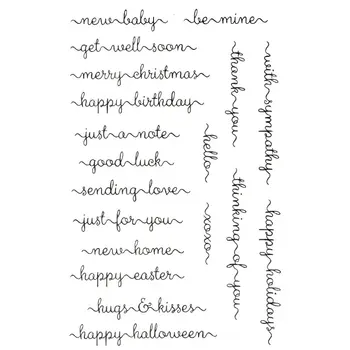 new baby
be mine
get well soon
merry christmas
happy birthday
just a note
good luck
sending love
just for you
new home
happy easter
hugs & kisses
happy halloween
thank you
with sympathy
hello
thinking of you
xoxo
happy holidays